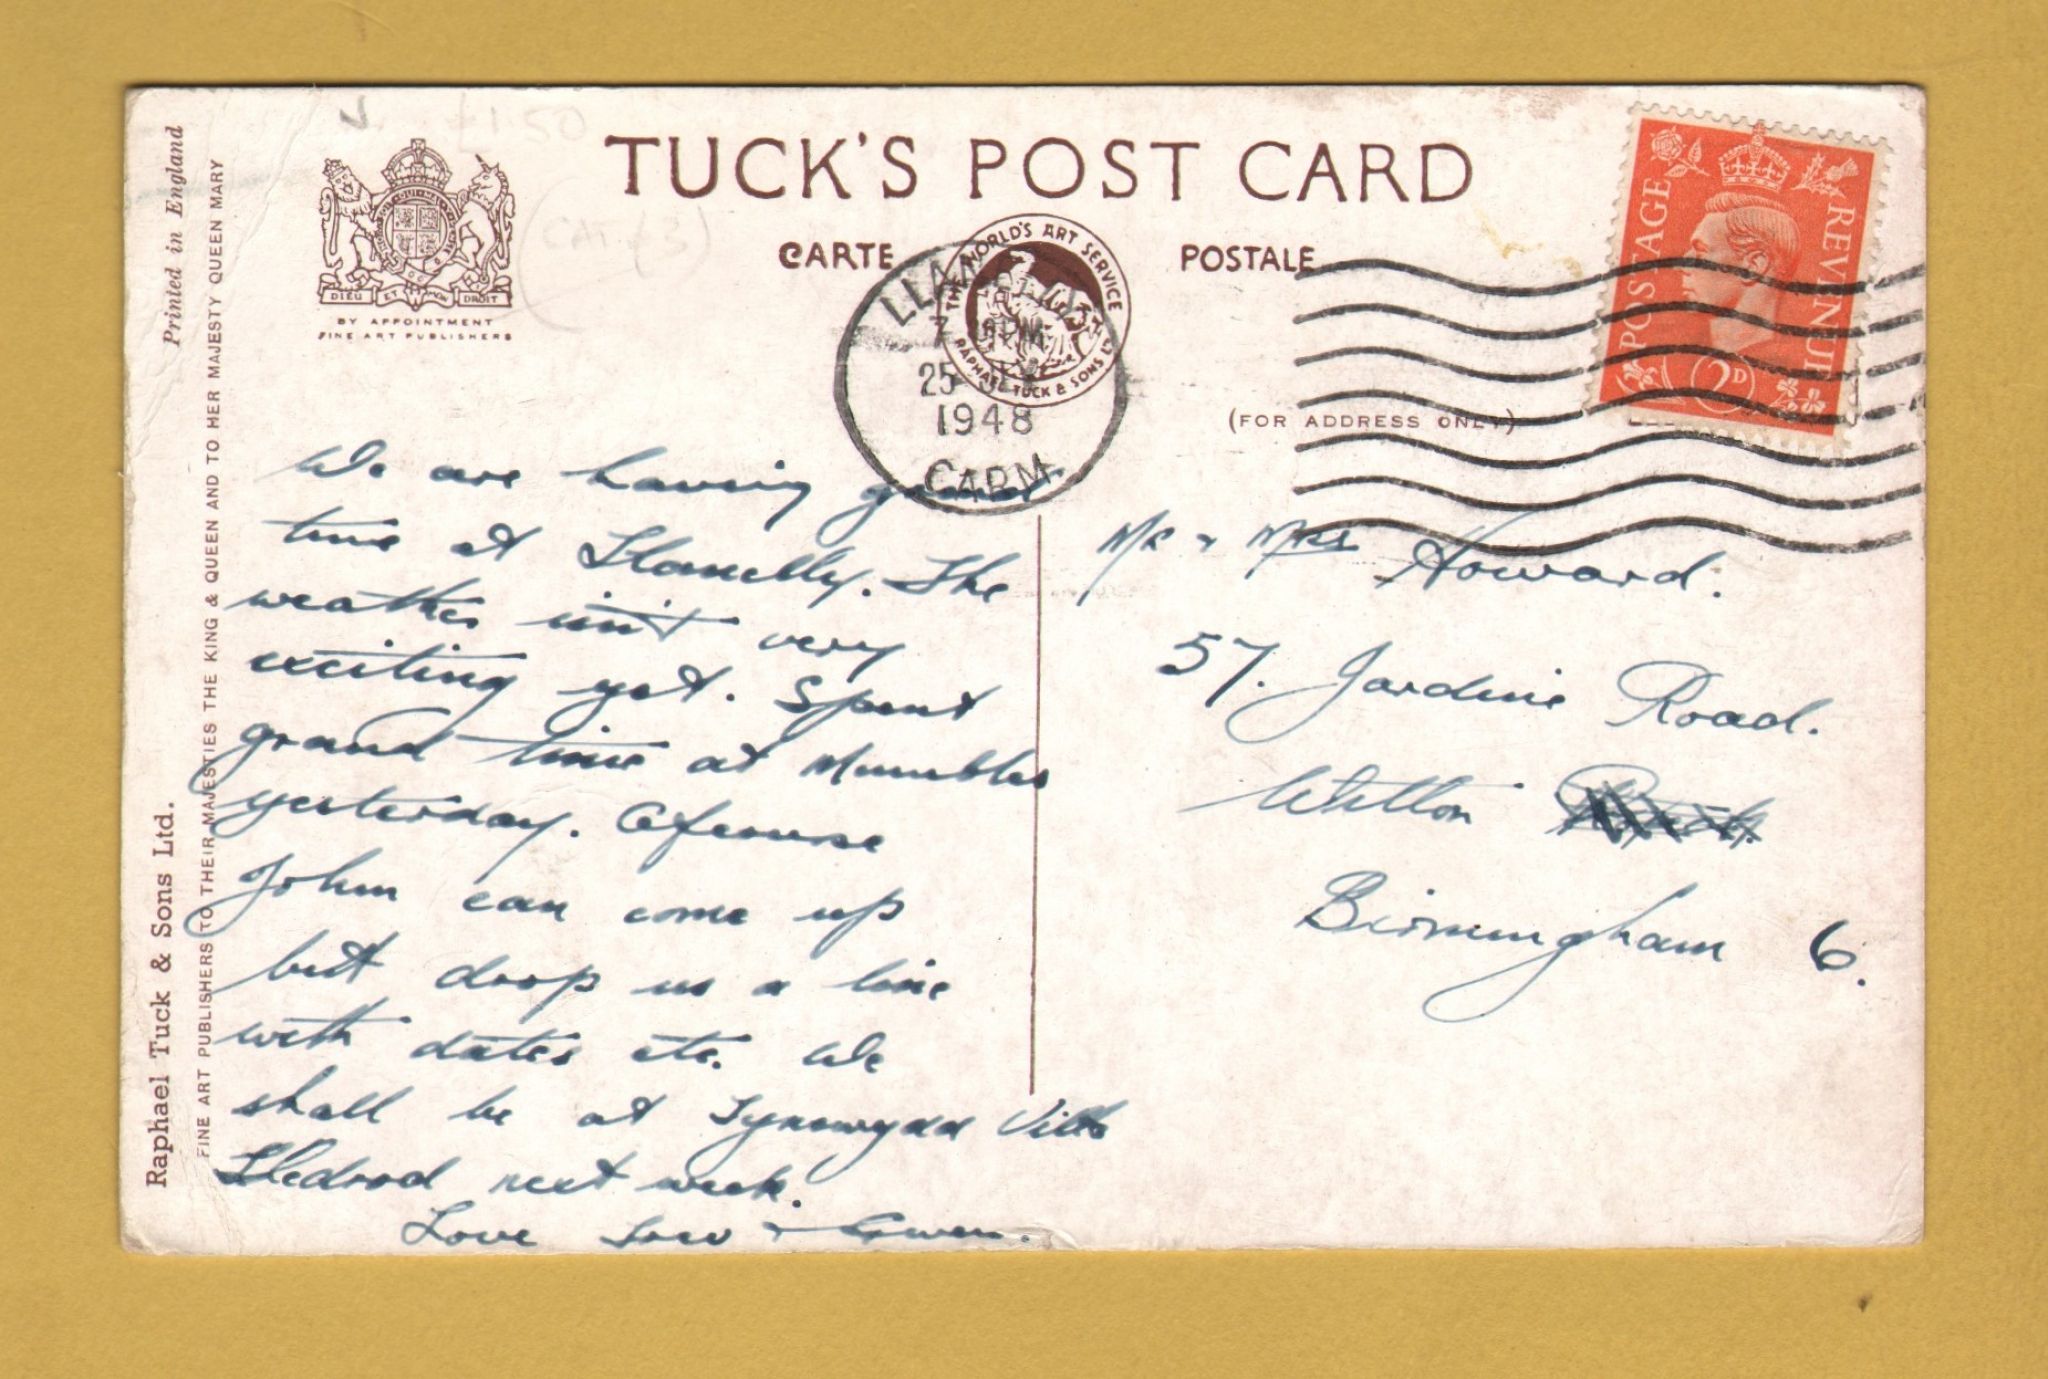 Printed in England
FINE ART PUBLISHERS TO THEIR MAJESTIES THE KING & QUEEN AND TO HER MAJESTY QUEEN MARY
Raphael Tuck & Sons Ltd.
£1.50
DIEU ET MON DROIT
BY APPOINTMENT
FINE ART PUBLISHERS
TUCK'S POST CARD
CARTE POSTALE
THE WORLD'S ART SERVICE
RAPHAEL TUCK & SONS LTD
LLANELLY
25
1948
CARM
(FOR ADDRESS ONLY)
POSTAGE REVENUE
2D
We are having grand
time at Llanelly. The
weather isn't very
exciting yet. Spent
grand time at Mumbles
yesterday. Ofcourse
John can come up
but drop us a line
with dates etc. We
shall be at Tynewydd Villa
Lledrod next week.
Love + Gwen.
Mr + Mrs Howard.
57. Jardine Road.
Witton
Birmingham 6.